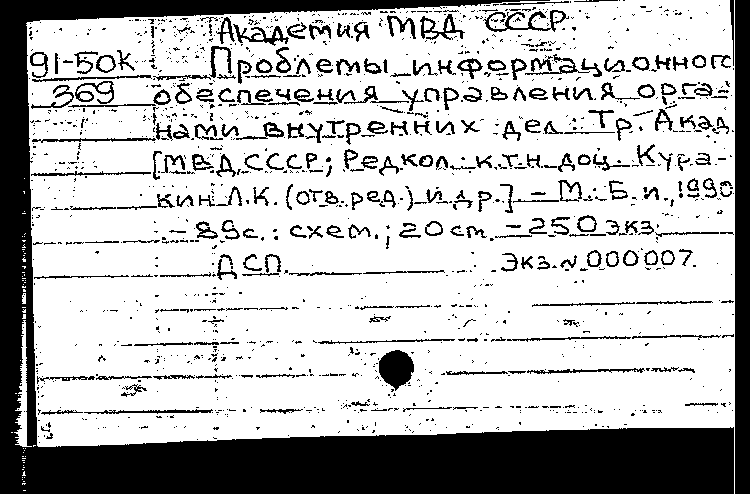 Академия МВД СССР.
91-50к Проблемы информационного
369 обеспечения управления орга-
нами внутренних дел: Тр. Акад
[МВД СССР; Редкол.: к.т.н. доц. Кура-
кин Л.К. (отв. ред.) и др.] - М.: Б. и., 1990
- 89с.: схем.; 20 см. - 250 экз.
ДСП. Экз. № 000007.